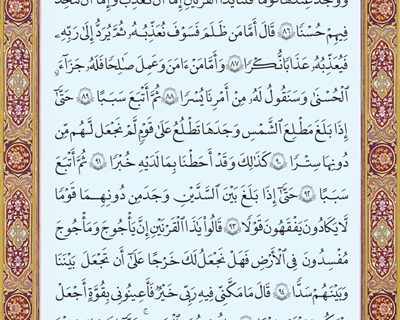 فِيهِمْ حُسْنًا ٨٦ قَالَ أَمَّا مَن ظَلَمَ فَسَوْفَ نُعَذِّبُهُۥ ثُمَّ يُرَدُّ إِلَىٰ رَبِّهِۦ
فَيُعَذِّبُهُۥ عَذَابًا نُّكْرًا ٨٧ وَأَمَّا مَنْ ءَامَنَ وَعَمِلَ صَـٰلِحًا فَلَهُۥ جَزَآءً
ٱلْحُسْنَىٰ وَسَنَقُولُ لَهُۥ مِنْ أَمْرِنَا يُسْرًا ٨٨ ثُمَّ أَتْبَعَ سَبَبًا ٨٩ حَتَّىٰٓ
إِذَا بَلَغَ مَطْلِعَ ٱلشَّمْسِ وَجَدَهَا تَطْلُعُ عَلَىٰ قَوْمٍ لَّمْ نَجْعَل لَّهُم مِّن
دُونِهَا سِتْرًا ٩٠ كَذَٰلِكَ وَقَدْ أَحَطْنَا بِمَا لَدَيْهِ خُبْرًا ٩١ ثُمَّ أَتْبَعَ
سَبَبًا ٩٢ حَتَّىٰٓ إِذَا بَلَغَ بَيْنَ ٱلسَّدَّيْنِ وَجَدَ مِن دُونِهِمَا قَوْمًا
لَّا يَكَادُونَ يَفْقَهُونَ قَوْلًا ٩٣ قَالُوا۟ يَـٰذَا ٱلْقَرْنَيْنِ إِنَّ يَأْجُوجَ وَمَأْجُوجَ
مُفْسِدُونَ فِى ٱلْأَرْضِ فَهَلْ نَجْعَلُ لَكَ خَرْجًا عَلَىٰٓ أَن تَجْعَلَ بَيْنَنَا
وَبَيْنَهُمْ سَدًّا ٩٤ قَالَ مَا مَكَّنِّى فِيهِ رَبِّى خَيْرٌ فَأَعِينُونِى بِقُوَّةٍ أَجْعَلْ